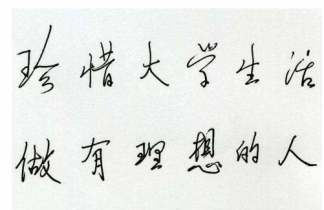 珍惜大学生活
做有理想的人